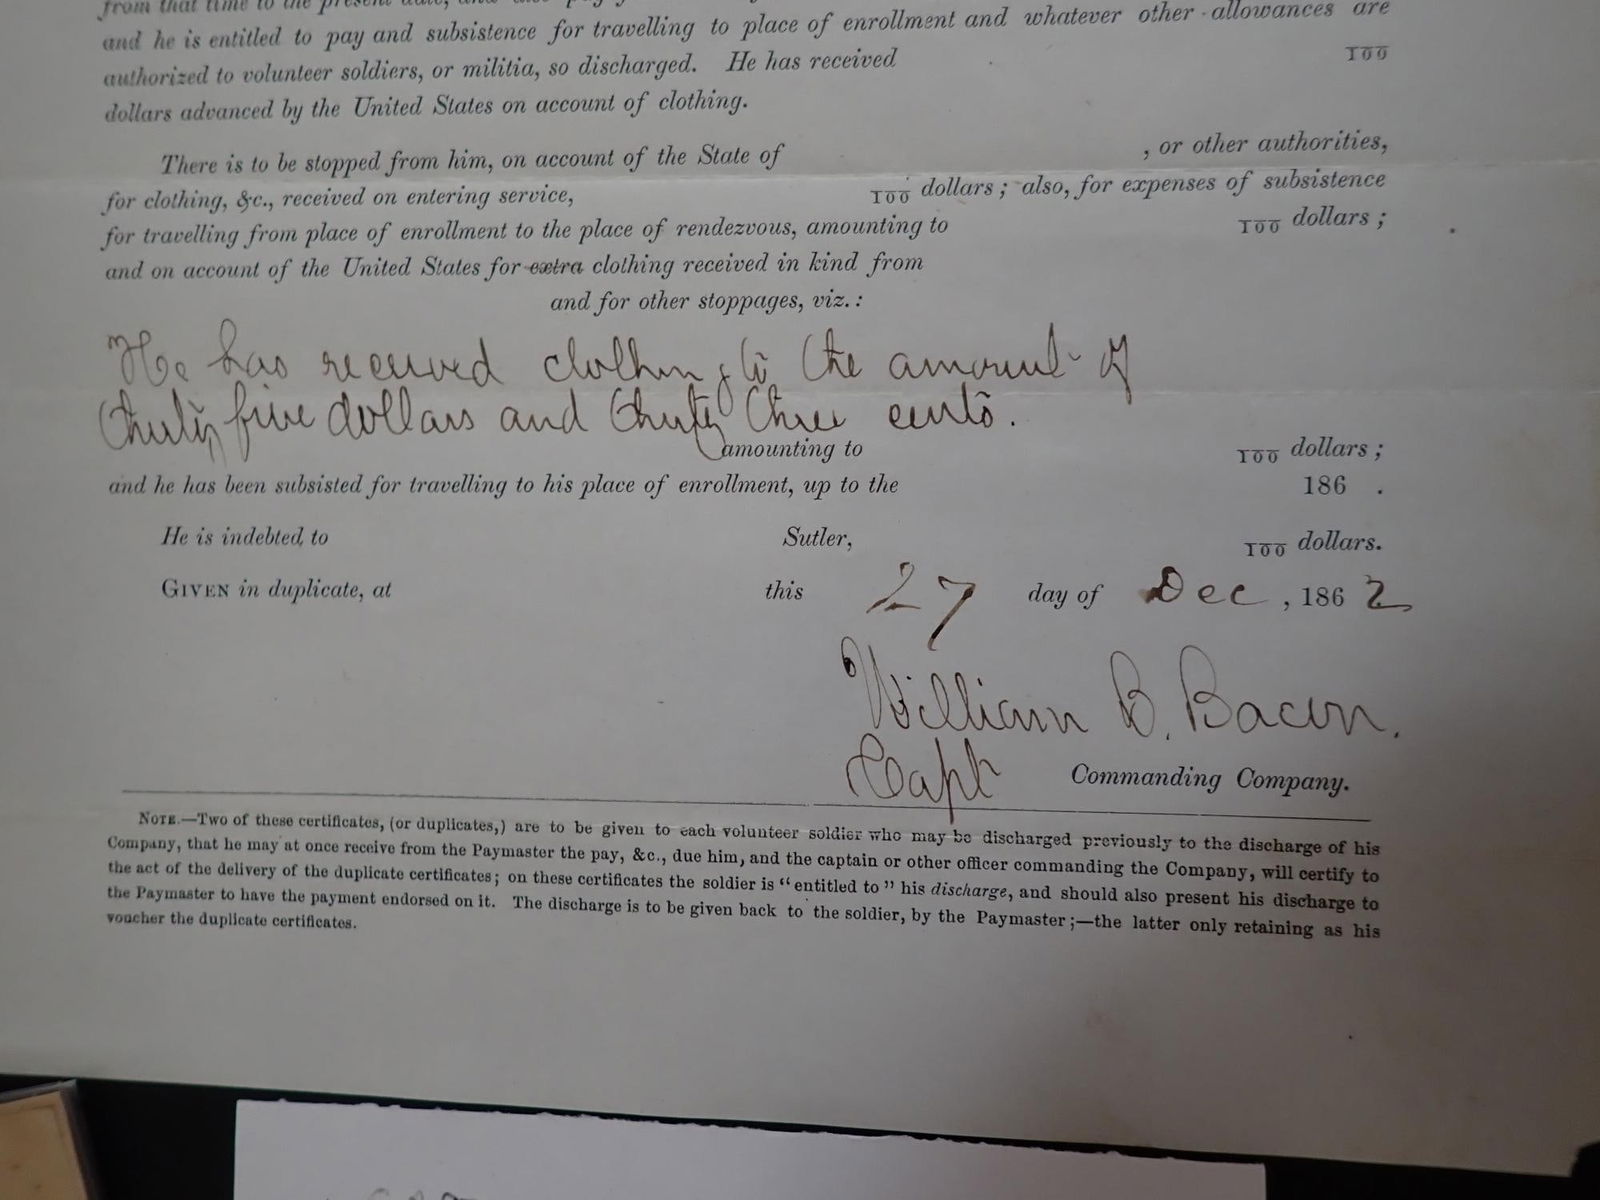 from that time to the present date,
and he is entitled to pay and subsistence for travelling to place of enrollment and whatever other allowances are
authorized to volunteer soldiers, or militia, so discharged. He has received 100
dollars advanced by the United States on account of clothing.
There is to be stopped from him, on account of the State of , or other authorities,
for clothing, &c., received on entering service, 100 dollars; also, for expenses of subsistence
for travelling from place of enrollment to the place of rendezvous, amounting to 100 dollars;
and on account of the United States for extra clothing received in kind from
and for other stoppages, viz.:
He has received clothing to the amount of
thirty five dollars and thirty three cents.
amounting to 100 dollars;
and he has been subsisted for travelling to his place of enrollment, up to the 186 .
He is indebted to Sutler, 100 dollars.
GIVEN in duplicate, at this 27 day of Dec, 1862
William B. Bacon.
Capt Commanding Company.
NOTE.—Two of these certificates, (or duplicates,) are to be given to each volunteer soldier who may be discharged previously to the discharge of his
Company, that he may at once receive from the Paymaster the pay, &c., due him, and the captain or other officer commanding the Company, will certify to
the act of the delivery of the duplicate certificates; on these certificates the soldier is "entitled to" his discharge, and should also present his discharge to
the Paymaster to have the payment endorsed on it. The discharge is to be given back to the soldier, by the Paymaster;—the latter only retaining as his
voucher the duplicate certificates.